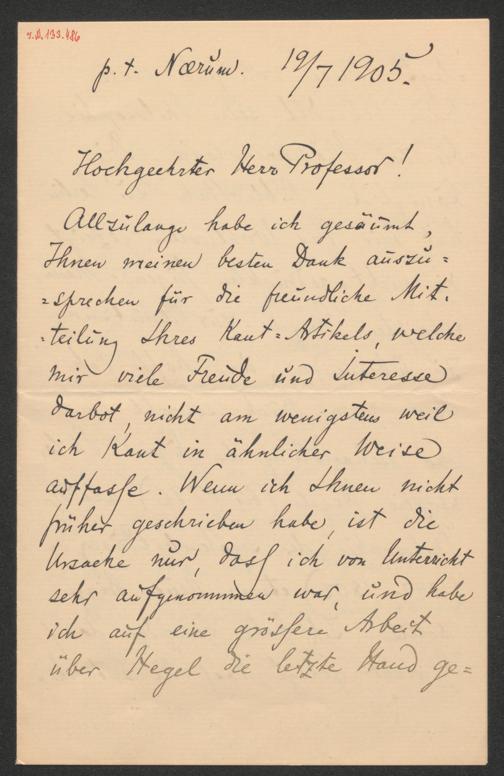 I.N.133.486
p. t. Nærum. 19/7 1905.
Hochgeehrter Herr Professor!
Allzulange habe ich gesäumt,
Ihnen meinen besten Dank auszu=
=sprechen für die freundliche Mit.
-teilung Ihres Kant=Artikels, welche
mir viele Freude und Interesse
darbot, nicht am wenigstens weil
ich Kant in ähnlicher Weise
auffasse. Wenn ich Ihnen nicht
früher geschrieben habe, ist die
Ursache nur, dass ich von Unterricht
sehr aufgenommen war, und habe
ich auf eine grössere Arbeit
über Hegel die letzte Hand ge=